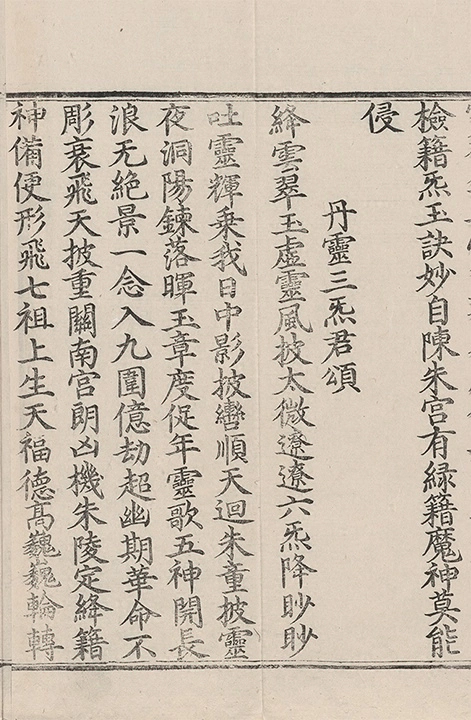 檢籍炁玉訣妙自陳朱宮有緑籍魔神莫能
侵
丹靈三炁君頌
絳雲翠玉虛靈風披太微遼遼六炁降眇眇
吐靈輝乗我日中影披轡順天迴朱童披靈
夜洞陽鍊落暉玉章度促年靈歌五神開長
浪无絶景一念入九圍億劫超幽期華命不
彫衰飛天披重關南宫朗凶機朱陵定絳籍
神備便形飛七祖上生天福德髙巍巍輪轉